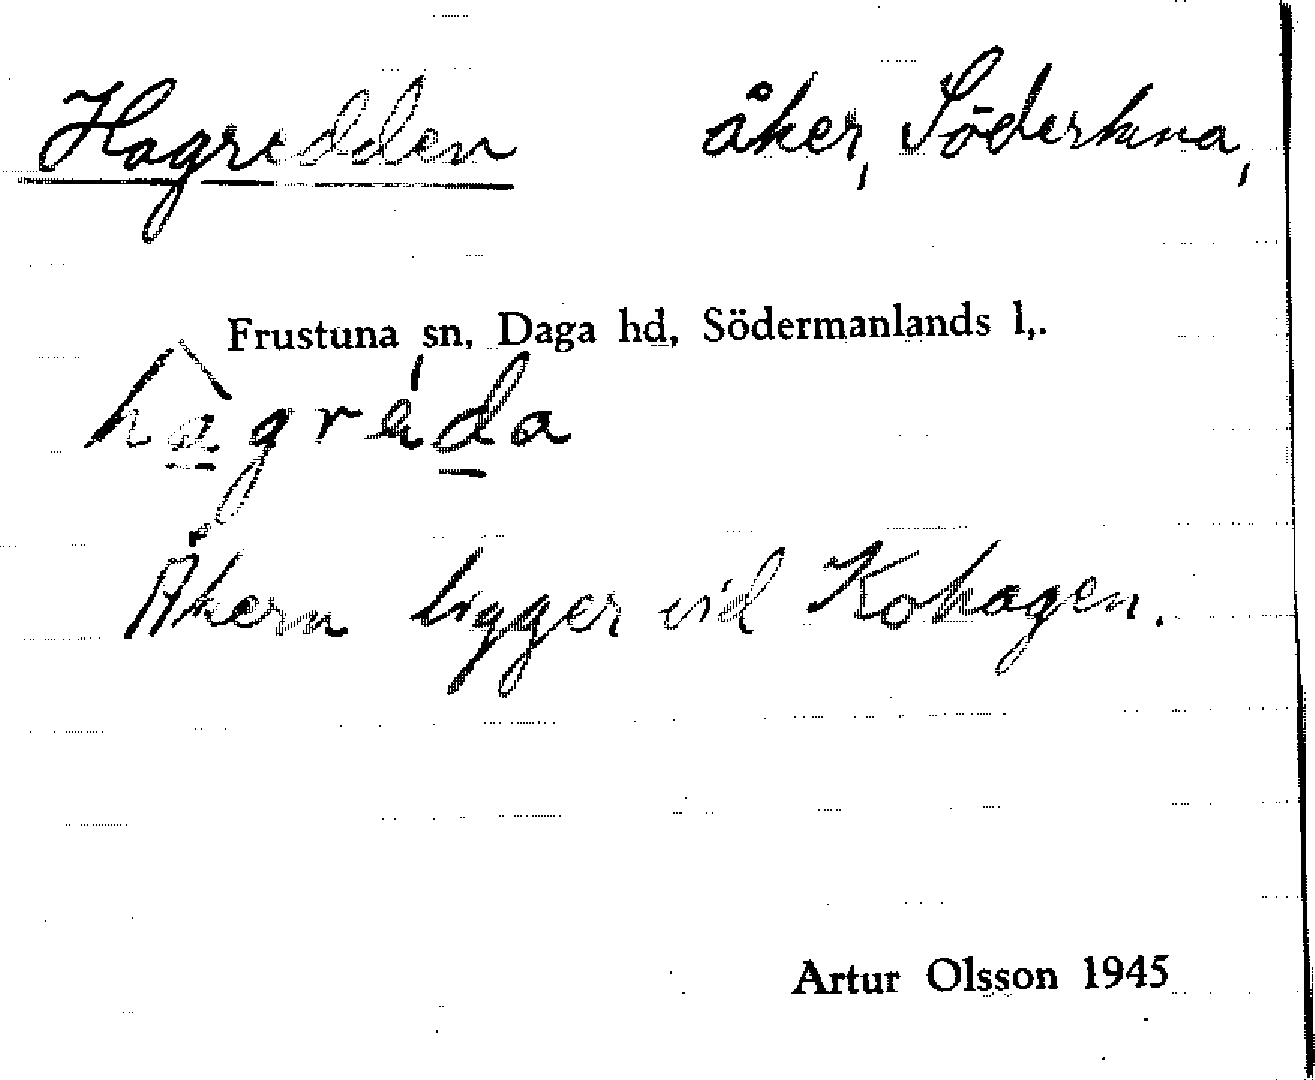 Hagredden åker, Södertuna,
Frustuna sn, Daga hd, Södermanlands l,.
Åkern ligger vid Kohagen.
Artur Olsson 1945